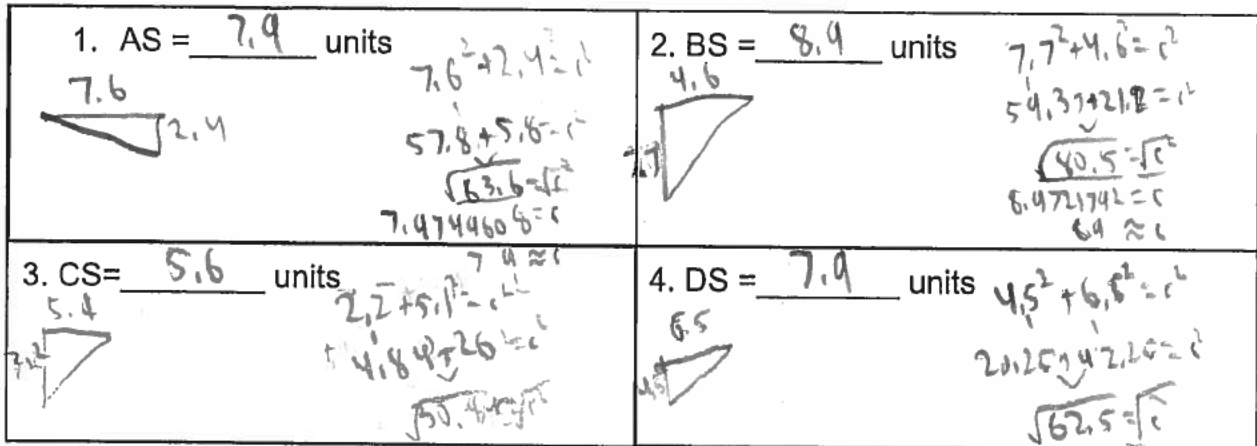 1. AS = 7.9 units
7.6
2.4
7.6² + 2.4² = c²
57.8 + 5.8 = c²
√63.6 = √c²
7.9749608 = c
7.9 ≈ c
2. BS = 8.9 units
4.6
7.7
7.7² + 4.6² = c²
√80.5 = √c²
8.9721792 = c
8.9 ≈ c
3. CS= 5.6 units
5.4
4.84 + 26 = c²
4. DS = 7.9 units
6.5
4.5
4.5² + 6.5² = c²
20.25 + 42.25 = c²
√62.5 = √c